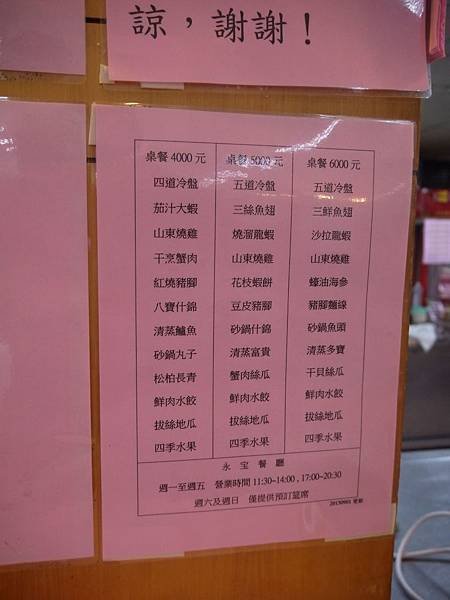 諒，謝謝！
桌餐 4000 元 桌餐 5000 元 桌餐 6000 元
四道冷盤 五道冷盤 五道冷盤
茄汁大蝦 三絲魚翅 三鮮魚翅
山東燒雞 燒溜龍蝦 沙拉龍蝦
干烹蟹肉 山東燒雞 山東燒雞
紅燒豬腳 花枝蝦餅 蠔油海參
八寶什錦 豆皮豬腳 豬腳麵線
清蒸鱸魚 砂鍋什錦 砂鍋魚頭
砂鍋丸子 清蒸富貴 清蒸多寶
松柏長青 蟹肉絲瓜 干貝絲瓜
鮮肉水餃 鮮肉水餃 鮮肉水餃
拔絲地瓜 拔絲地瓜 拔絲地瓜
四季水果 四季水果 四季水果
永宝餐廳
週一至週五 營業時間 11:30~14:00 , 17:00~20:30
週六及週日 僅提供預訂筵席
20130901 更新